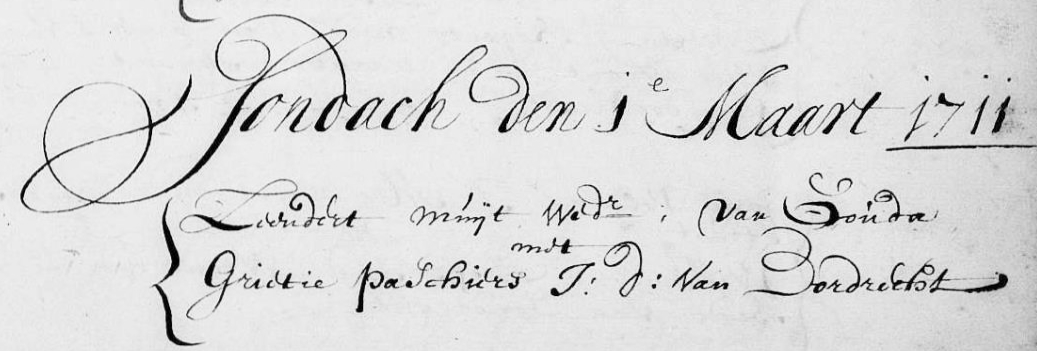 Sondach den 1e Maart 1711
Leendert Muijt Wedr. van Gouda
met
Grietie Paschiers J: d: van Dordrecht